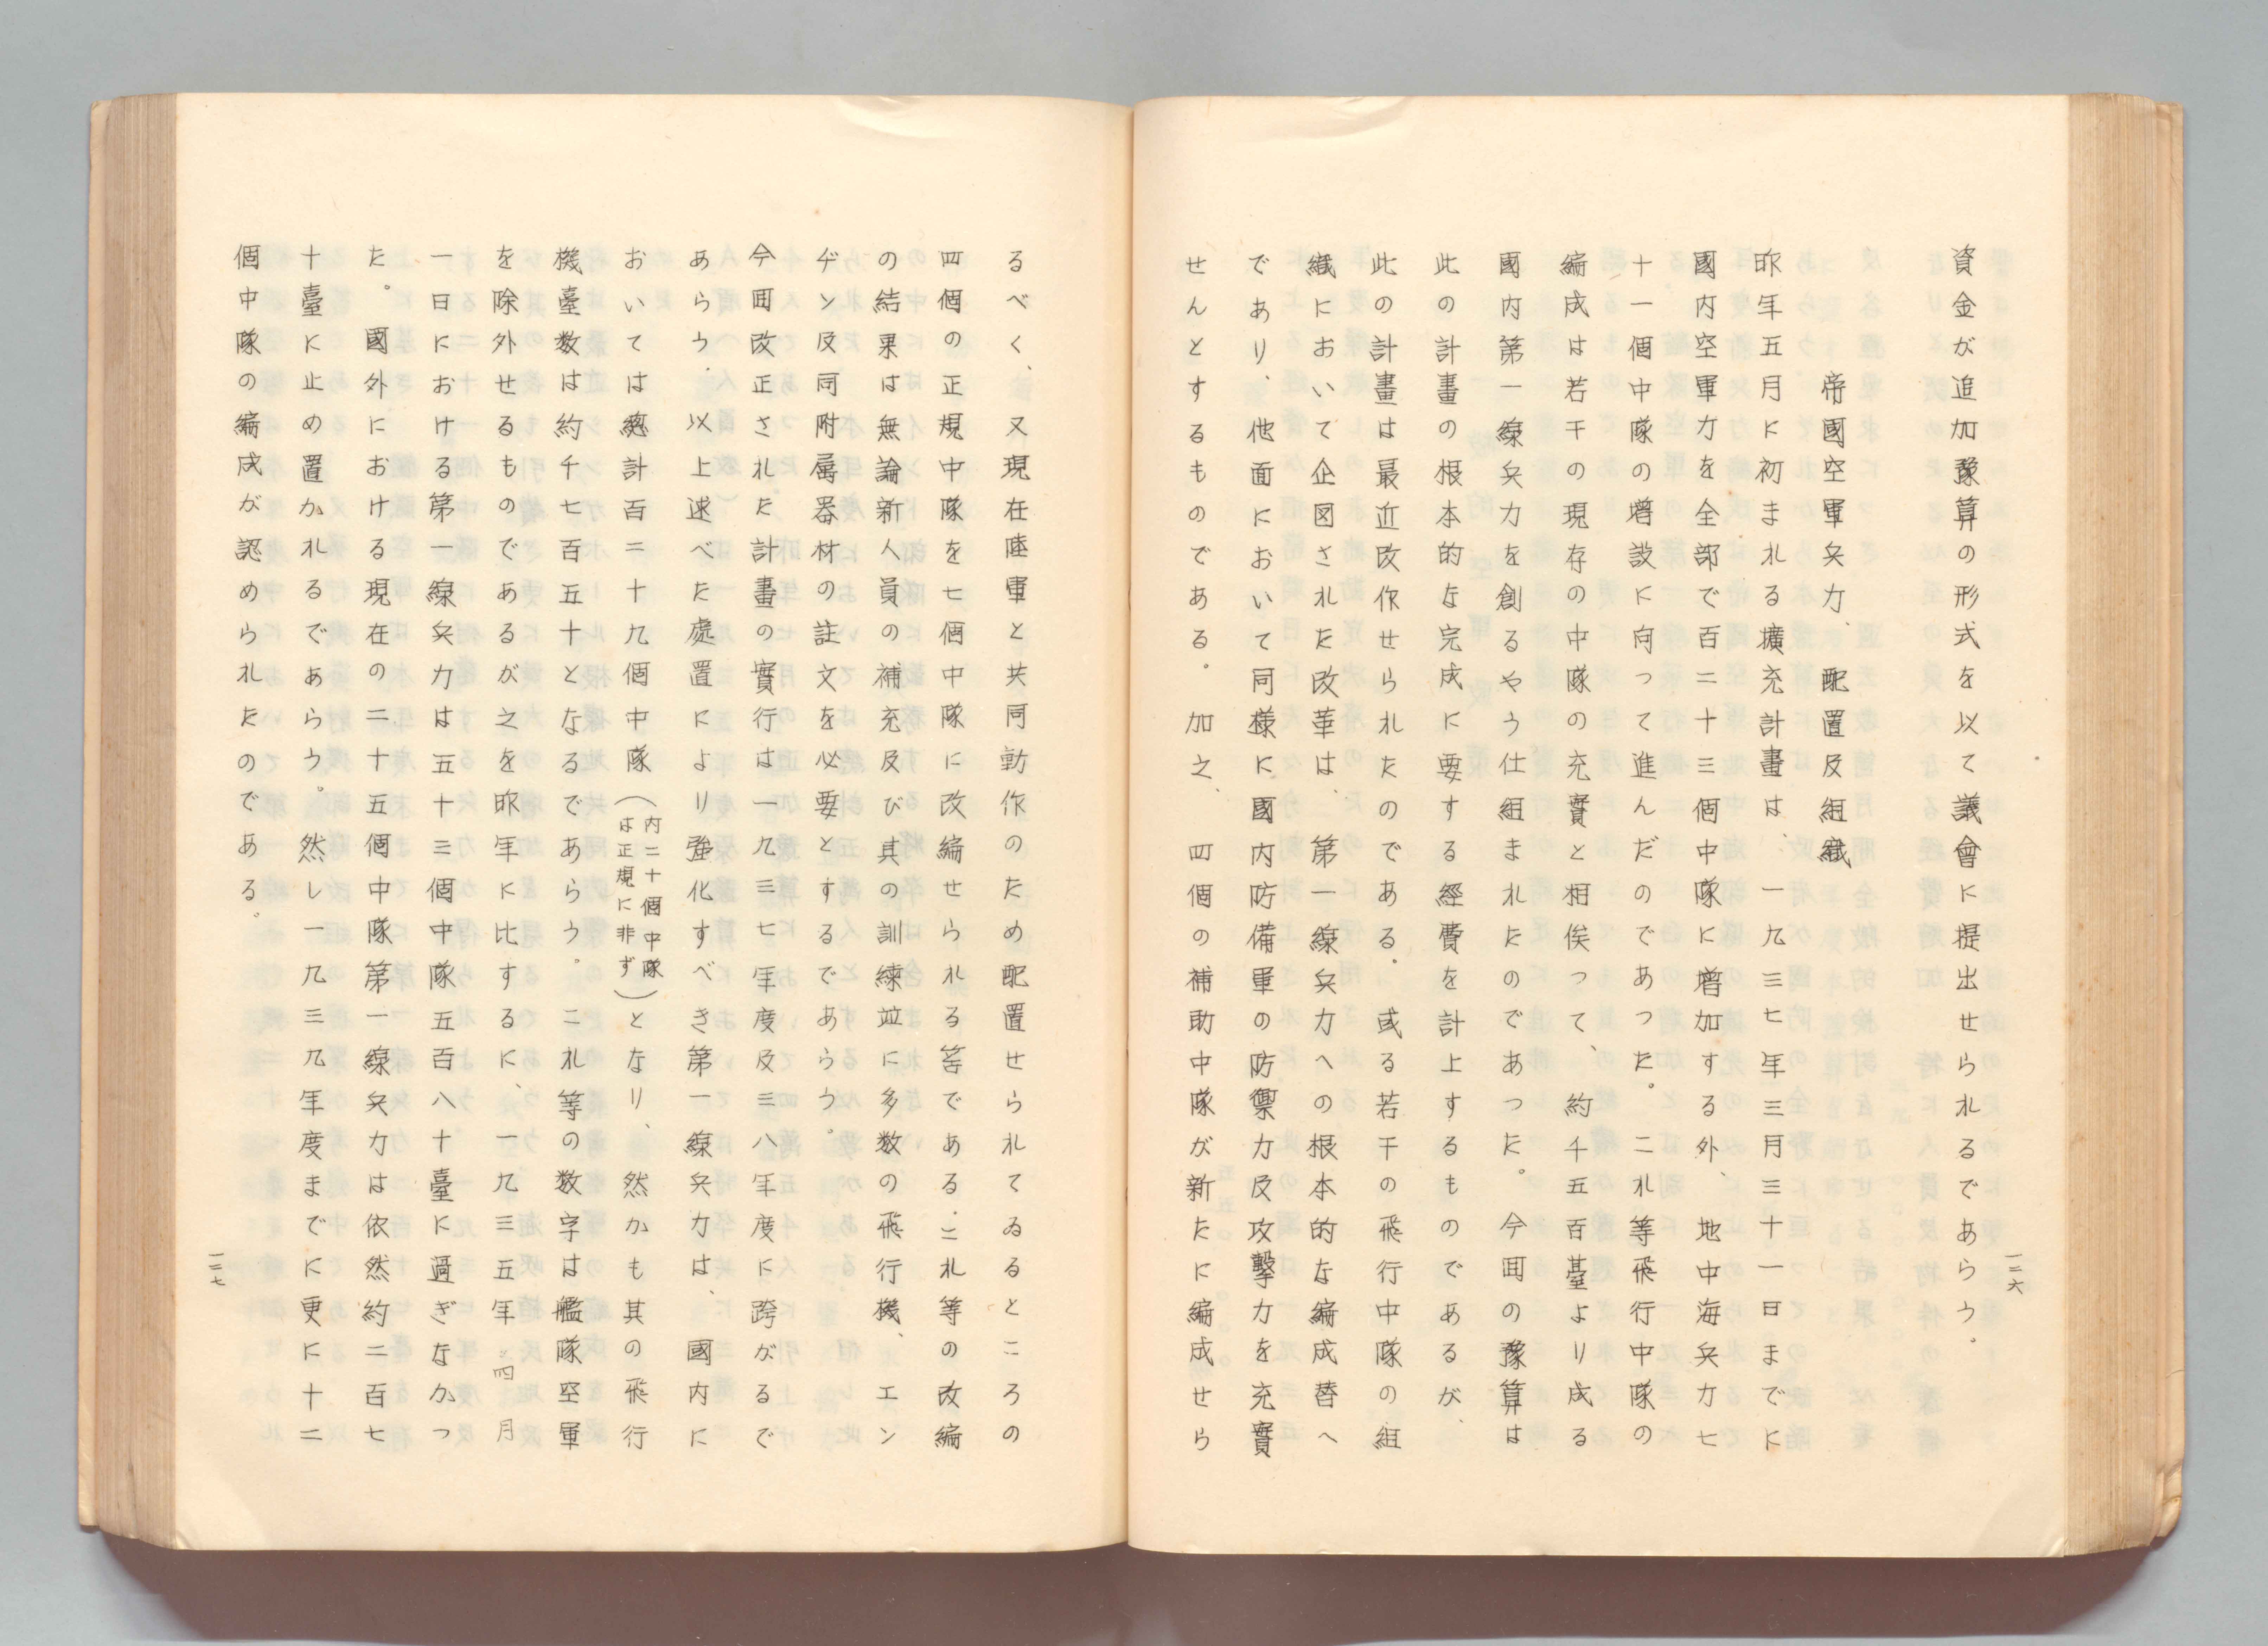 資金が追加豫算の形式を以て議會に提出せられるであらう。
帝國空軍兵力、配置及組織
昨年五月に初まれる擴充計畫は、一九三七年三月三十一日までに
國内空軍力を全部で百二十三個中隊に増加する外、地中海兵力七
十一個中隊の増設に向って進んだのであった。二れ等飛行中隊の
編成は若干の現存の中隊の充實と相俟って、約千五百臺より成る
國内第一線兵力を創るやう仕組まれたのであった。今囬の豫算は
此の計畫の根本的な完成に要する經費を計上するものであるが、
此の計畫は最近改作せられたのである。或る若干の飛行中隊の組
織において企図された改革は、第一線兵力への根本的な編成替へ
であり、他面において同様に國内防備軍の防禦力及攻擊力を充實
せんとするものである。加之、四個の補助中隊が新たに編成せら
一二六
るべく、又現在陸軍と共同動作のため配置せられてゐるところの
四個の正規中隊を七個中隊に改編せられる筈である。これ等の改編
の結果は無論新人員の補充及び其の訓練並に多数の飛行機、エン
ヂン及同附属器材の註文を必要とするであらう。
今囬改正された計畫の實行は一九三七年度及三八年度に跨がるで
あらう。以上述べた處置により強化すべき第一線兵力は、國内に
おいては總計百二十九個中隊（内二十個中隊は正規に非ず）となり、然かも其の飛行
機臺数は約千七百五十となるであらう。これ等の数字は艦隊空軍
を除外せるものであるが之を昨年に比するに、一九三五年四月
一日における第一線兵力は五十三個中隊五百八十臺に過ぎなかっ
た。國外における現在の二十五個中隊第一線兵力は依然約二百七
十臺に止め置かれるであらう。然し一九三九年度までに更に十二
個中隊の編成が認められたのである。
一二七